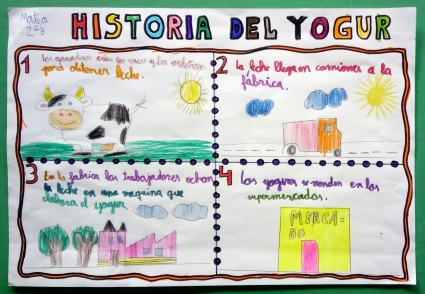 Mateo
2ºB
HISTORIA DEL YOGUR
1 Los ganaderos crían las vacas y las ordeñan
para obtener leche.
2 La leche llega en camiones a la
fábrica.
3 En la fábrica los trabajadores echan
la leche en una maquina que
elabora el yogur
4 Los yogures se venden en los
supermercados.
MERCA-
DO